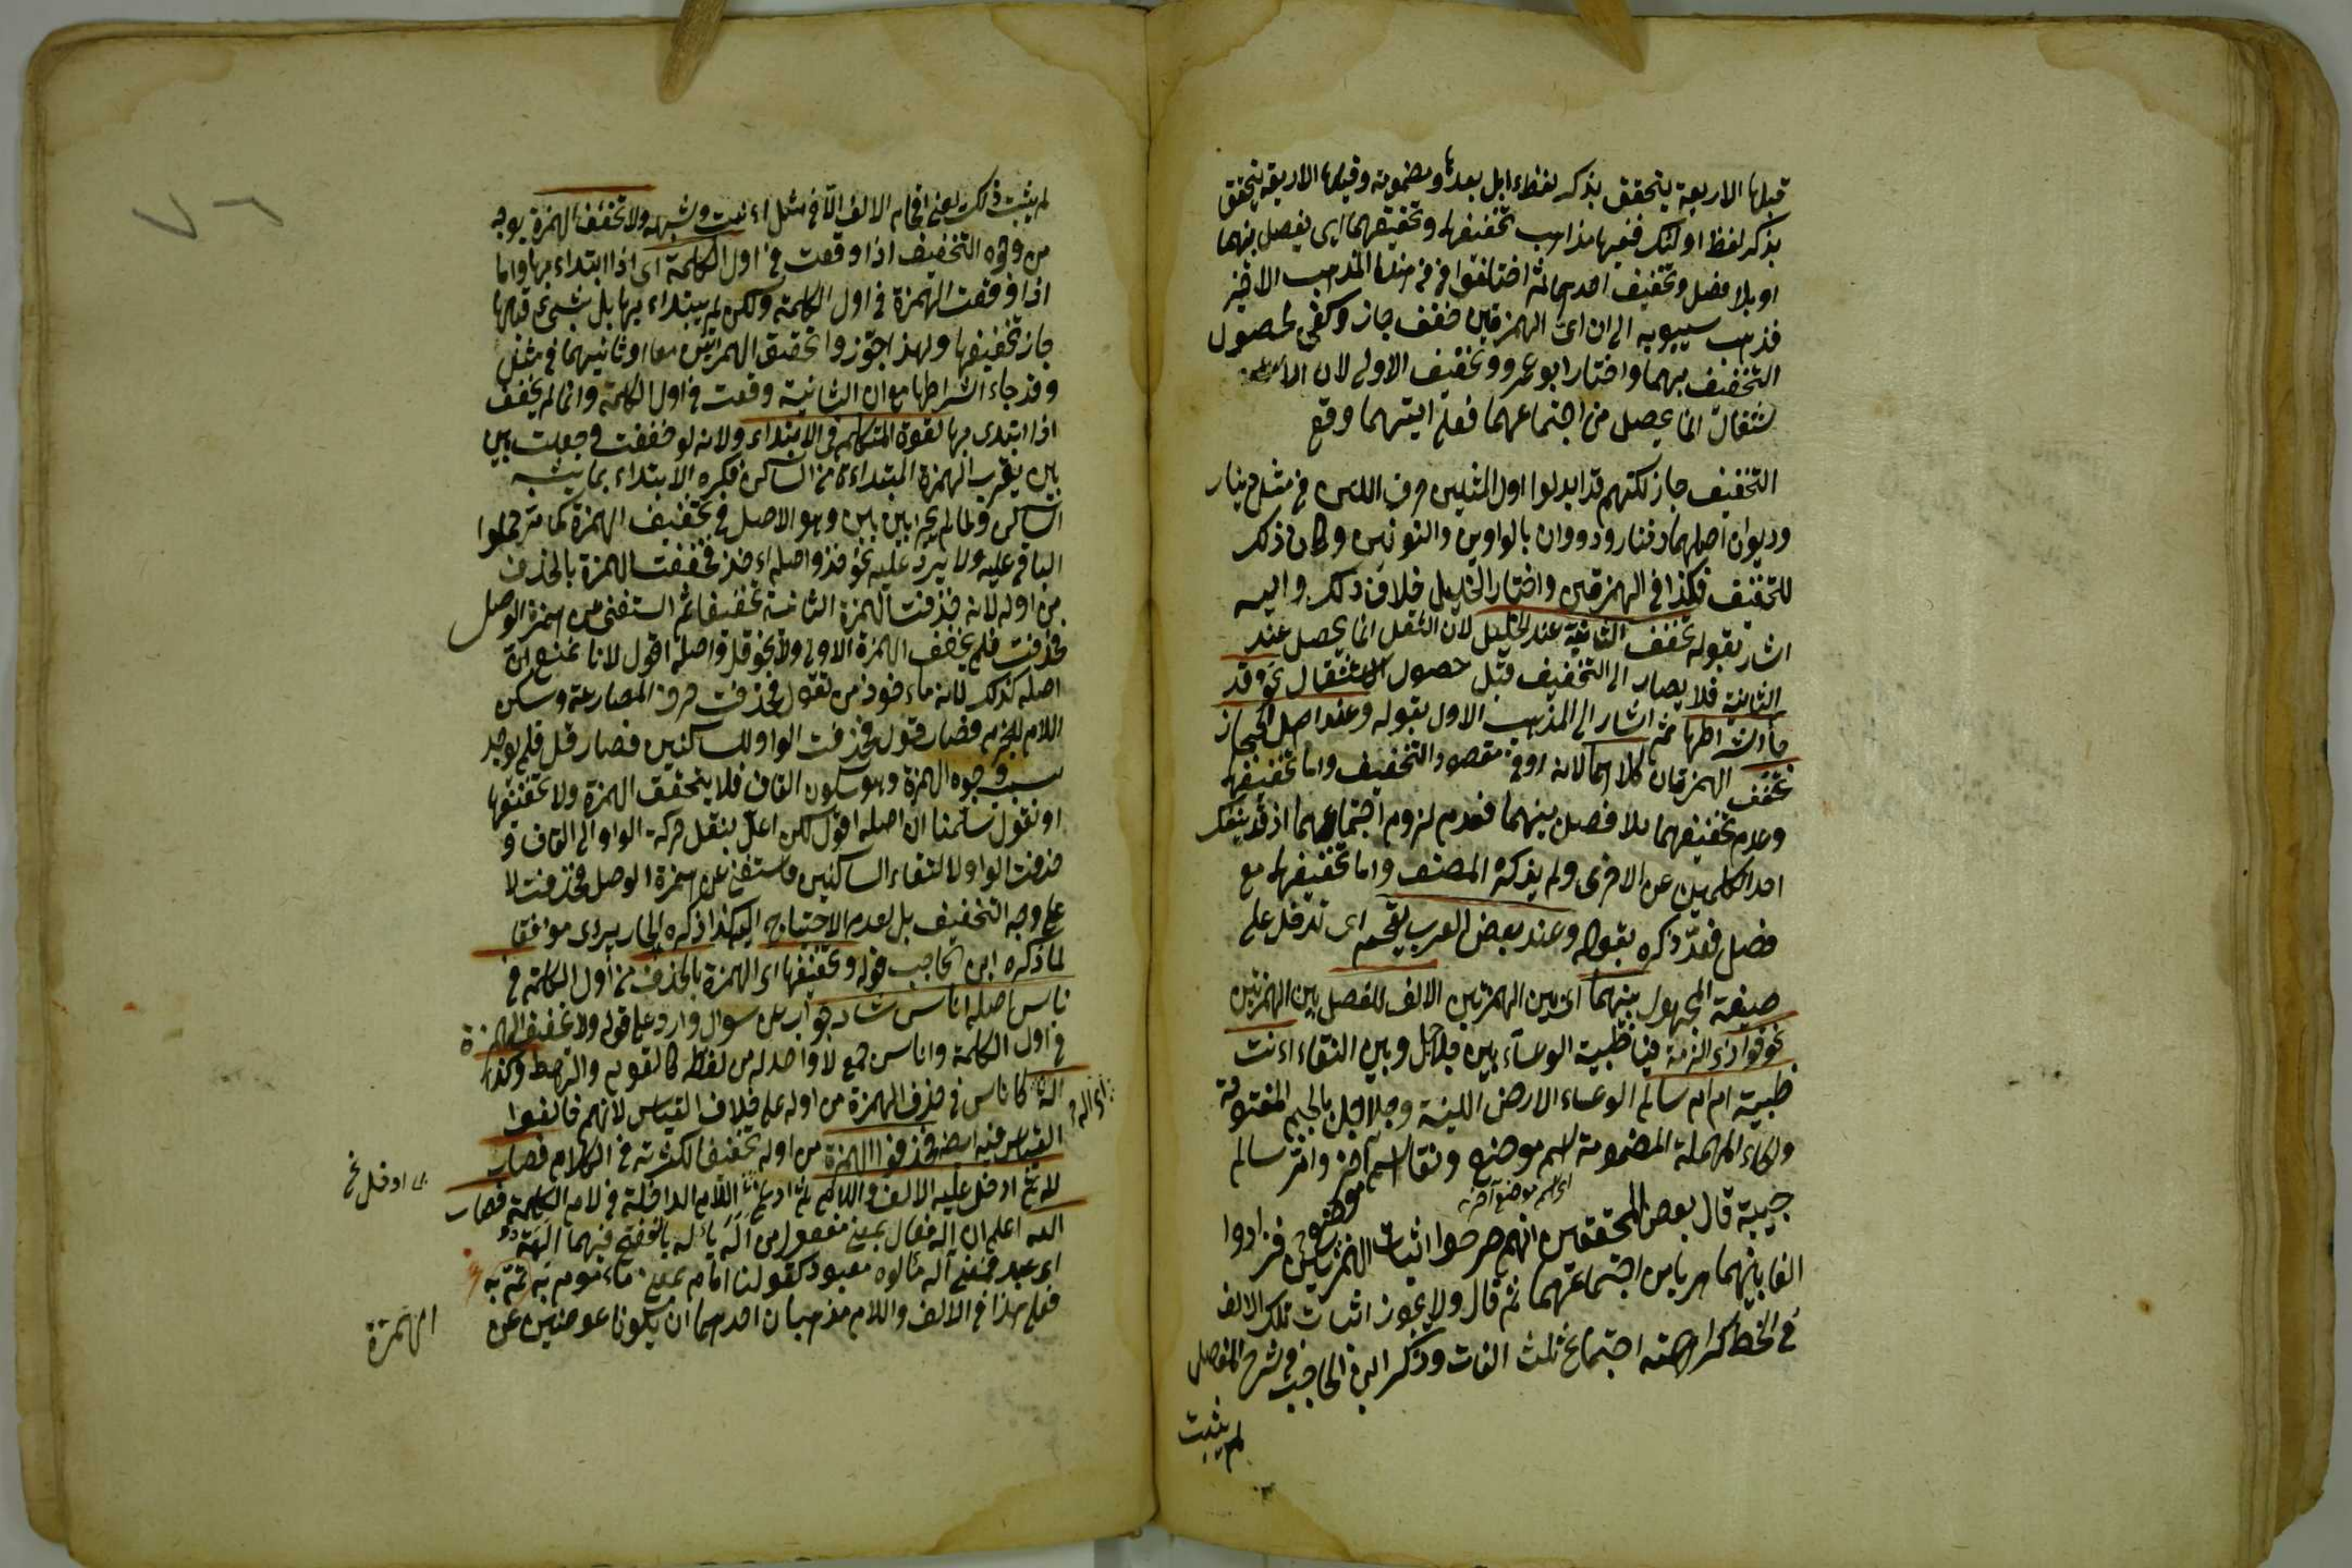 قبلها الاربعة يتحقق بذكر لفظ ابل بعدها ومضمومة وقبلها الاربعة يتحقق
بذكر لفظ اولئك ففيها مذاهب تخفيفها وتحقيقهما اى يفصل بينهما
او بلا فصل وتخفيف احدهما ثم اختلفوا فى هذا المذهب الاخير
فذهب سيبويه الى ان اى الهمزتين خفف جاز وكفى لحصول
التخفيف بهما واختار ابو عمرو وتخفيف الاولى لان
انما يحصل من اجتماعهما فعلى ايتهما وقع
التخفيف جاز لكنهم قد ابدلوا اول المثلين حرف اللين فى مثل دينار
وديوان اصلهما دننار ودووان بالواوين والنونين وكان ذلك
للتخفيف فكذا فى الهمزتين واختار الخليل خلاف ذلك واليه
اشار بقوله تخفف الثانية عند الخليل لان الثقل انما يحصل عند
الثانية فلا يصار الى التخفيف قبل حصول الاستثقال نحو فقد
جاء اشراطها ثم اشار الى المذهب الاول بقوله وعند اهل الحجاز
تخفف الهمزتان كلاهما لانه اوفى مقصود التخفيف واما تحقيقهما
وعدم تخفيفهما بلا فصل بينهما فعدم لزوم اجتماعهما اذ قد ينفك
احد الكلمتين عن الاخرى ولم يذكره المصنف واما تحقيقهما مع
فصل فقد ذكره بقوله وعند بعض العرب يقحم اى تدخل على
صيغة المجهول بينهما اى بين الهمزتين الالف للفصل بين الهمزتين
نحو قول ذى الرمة فيا ظبية الوعساء بين جلاجل وبين النقا ءاانت
ظبية ام ام سالم الوعساء الارض اللينة وجلاجل بالجيم المفتوحة
والحاء المهملة المضمومة اسم موضع ونقا اسم آخر وام سالم
اى اسم موضع آخر
حبيبة قال بعض المحققين انهم حرصوا اثبات الهمزتين فزادوا
الفا بينهما هربا من اجتماعهما ثم قال ولا يجوز اثبات تلك الالف
فى الخط كراهة اجتماع ثلث الفات وذكر ابن الحاجب فى شرح المفصل
لم يثبت
لم يثبت ذلك يعنى اقحام الالف الا فى مثل ءاانت وشبهه ولا تخفف الهمزة بوجه
من وجوه التخفيف اذا وقعت فى اول الكلمة اى اذا ابتداء بها واما
اذا وقعت الهمزة فى اول الكلمة ولكن لم يبتداء بها بل بشىء قبلها
جاز تخفيفها ولهذا جوزوا تحقيق الهمزتين معا او ثانيهما فى مثل
وقد جاء اشراطها مع ان الثانية وقعت فى اول الكلمة وانما لم يخفف
اذا ابتدى بها لقوة المتكلم فى الابتداء ولانه لو خففت وجعلت بين
بين يقرب الهمزة المبتداءة من الساكن فكره الابتداء بما يشبه
الساكن ولما لم يجز بين بين وهو الاصل فى تخفيف الهمزة كما مر حملوا
الباقى عليه ولا يرد عليه نحو خذ واصله اءخذ فخففت الهمزة بالحذف
من اوله لانه حذفت الهمزة الثانية تخفيفا ثم استغنى عن همزة الوصل
فحذفت فلم يخفف الهمزة الاولى ولا نحو قل واصله اقول لانا نمنع ان
اصله كذلك لانه ماءخوذ من تقول فحذفت حرف المضارعة وسكن
اللام للجزم فصار قول فحذفت الواو للساكنين فصار قل فلم يوجد
سبب وجود الهمزة وهو سكون القاف فلا يتحقق الهمزة ولا تخفيفها
او نقول سلمنا ان اصله اقول لكن اعل بنقل حركة الواو الى القاف و
حذفت الواو لالتقاء الساكنين واستغنى عن همزة الوصل فحذفت لا
على وجه التخفيف بل لعدم الاحتياج اليه هكذا ذكره الجاربردى موافقا
لما ذكره ابن الحاجب قوله وتخفيفها اى الهمزة بالحذف من اول الكلمة فى
ناس اصله اناس شاذ جواب عن سوال وارد على قوله ولا تخفيف الهمزة
فى اول الكلمة واناس جمع لا واحد له من لفظه كالقوم والرهط وكذا
اله كاناس فى حذف الهمزة من اوله على خلاف القياس لانهم خالفوا
القياس فيه ايضا فحذفوا الهمزة من اوله تخفيفا لكثرته فى الكلام فصار
لاه ثم ادخل عليه الالف واللام ثم ادغم اللام الداخلة فى لام الكلمة فصار
الله اعلم ان اله فعال بمعنى مفعول من اَلَه يأله بالفتح فيهما الهة
اى عبد فمعنى اله مألوه معبود كقولنا امام بمعنى ماءموم به
فعلى هذا فى الالف واللام مذهبان احدهما ان يكونا عوضين عن
الهمزة
ادخل نخ